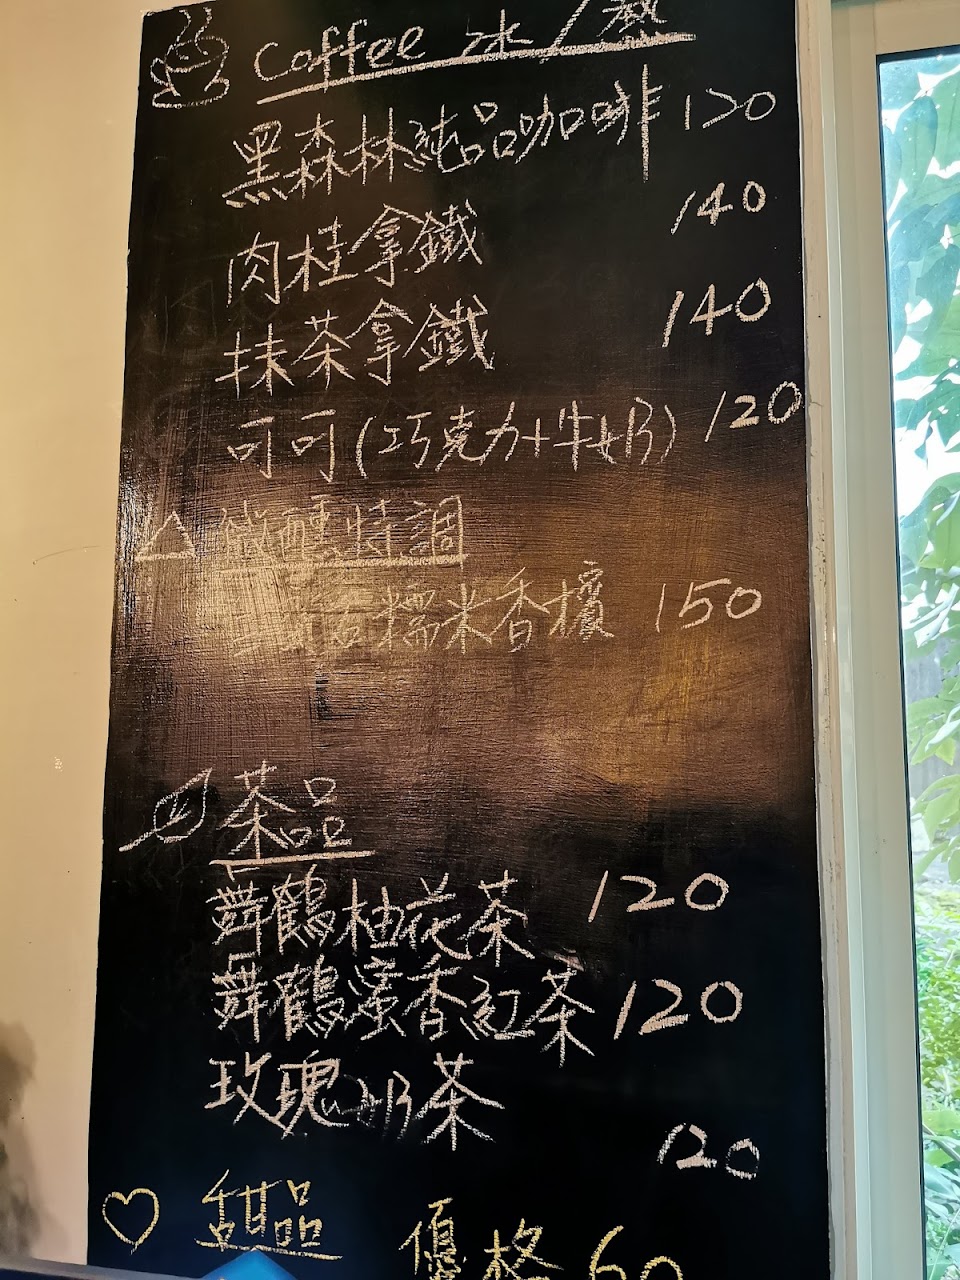 Coffee 冰/熱
黑森林純品咖啡 120
肉桂拿鐵 140
抹茶拿鐵 140
可可(巧克力+牛奶) 120
微醺特調
糯米香檳 150
茶品
舞鶴柚花茶 120
舞鶴蜜香紅茶 120
玫瑰奶茶 120
甜品 優格 60